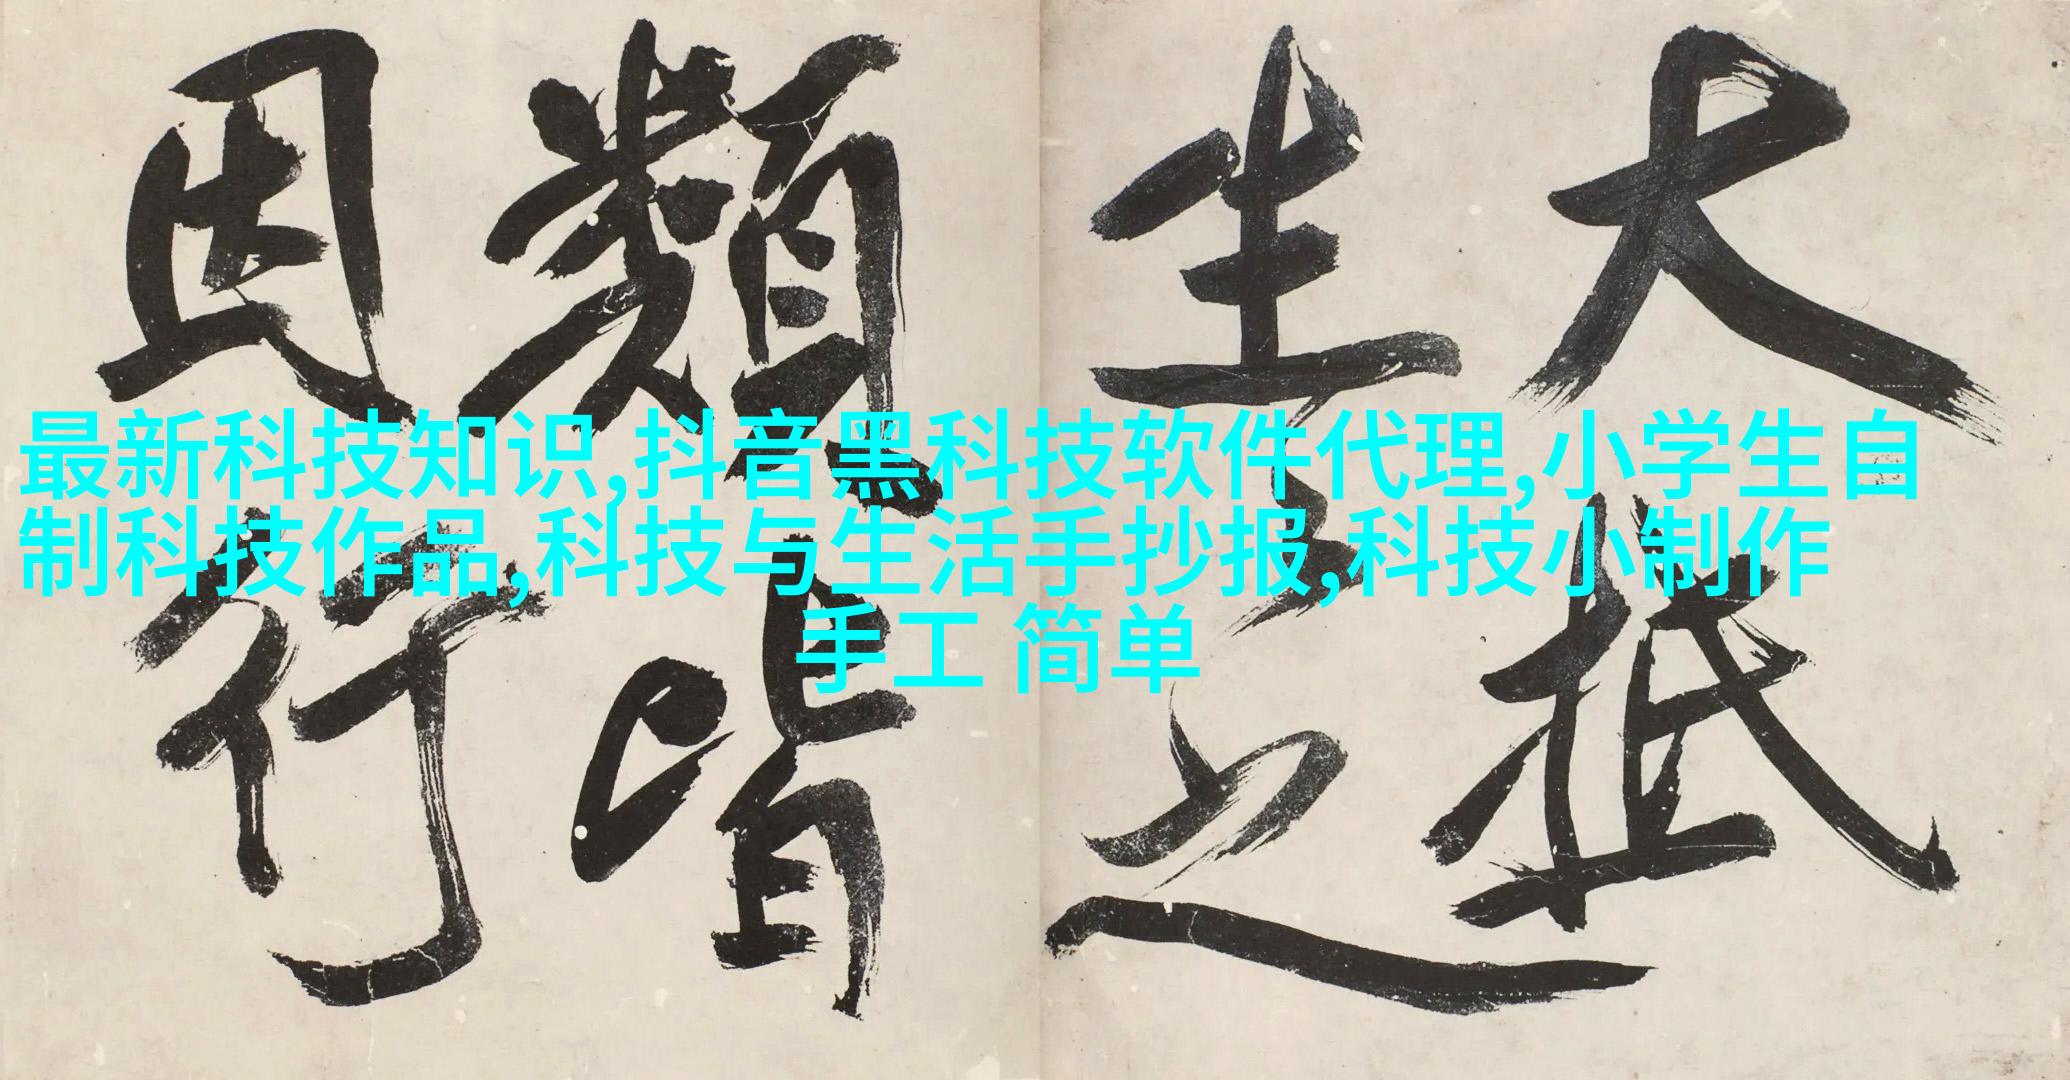 大抵
生之
類皆
因行
最新科技知识,抖音黑科技软件代理,小学生自
制科技作品,科技与生活手抄报,科技小制作
手工 简单